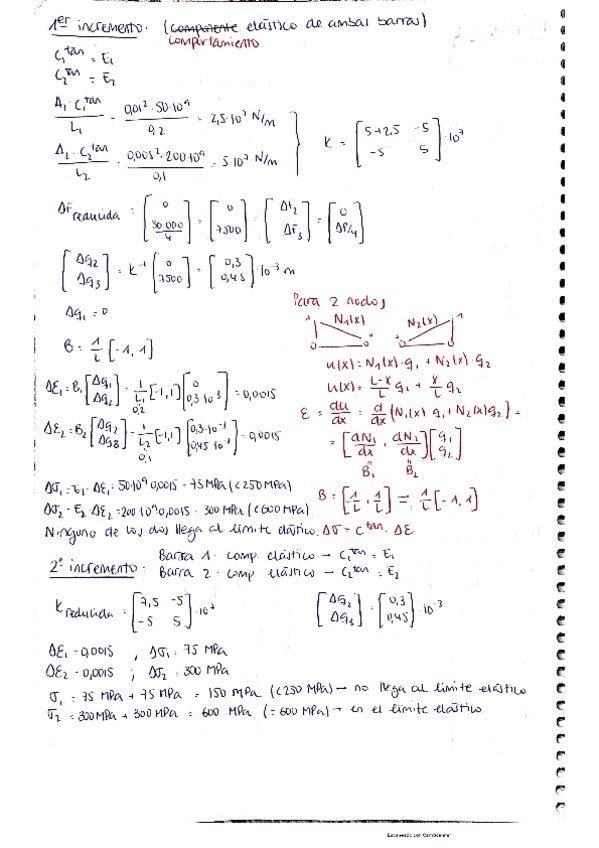 1er incremento. (componente elástico de ambas barras)
comportamiento
C1^tan = E1
C2^tan = E2
A1 · C1^tan / L1 = 0,01² · 50·10⁹ / 0,2 = 2,5·10⁷ N/m
A2 · C2^tan / L2 = 0,005² · 200·10⁹ / 0,1 = 5·10⁷ N/m
K = [5+2,5 -5; -5 5] ·10⁷
ΔF reducida = [0; 30.000/4] = [0; 7500] = [Δf2; Δf3] = [0; ΔP/4]
[Δq2; Δq3] = K⁻¹ [0; 7500] = [0,3; 0,45] ·10⁻³ m
Δq1 = 0
B = 1/L [-1, 1]
Δε1 = B1 [Δq1; Δq2] = 1/L1 [-1,1] [0; 0,3·10⁻³] = 0,0015
0,2
Δε2 = B2 [Δq2; Δq3] = 1/L2 [-1,1] [0,3·10⁻³; 0,45·10⁻³] = 0,0015
0,1
Para 2 nodos
1 N1(x) N2(x) 1
u(x) = N1(x)·q1 + N2(x)·q2
u(x) = L-x/L q1 + x/L q2
ε = du/dx = d/dx (N1(x) q1 + N2(x) q2) =
= [dN1/dx , dN2/dx] [q1; q2]
B1 B2
B = [-1/L , 1/L] = 1/L [-1, 1]
Δσ1 = E1 · Δε1 = 50·10⁹ · 0,0015 = 75 MPa (<250 MPa)
Δσ2 = E2 · Δε2 = 200·10⁹ · 0,0015 = 300 MPa (<600 MPa)
Ninguno de los dos llega al límite elástico. Δσ = C^tan · Δε
2º incremento:
Barra 1: comp. elástico → C1^tan = E1
Barra 2: comp elástico → C2^tan = E2
K reducida = [7,5 -5; -5 5] ·10⁷
[Δq2; Δq3] = [0,3; 0,45] ·10⁻³
Δε1 = 0,0015 , Δσ1 = 75 MPa
Δε2 = 0,0015 ; Δσ2 = 300 MPa
σ1 = 75 MPa + 75 MPa = 150 MPa (<250 MPa) → no llega al límite elástico
σ2 = 300 MPa + 300 MPa = 600 MPa (=600 MPa) → en el límite elástico
Escaneado con CamScanner